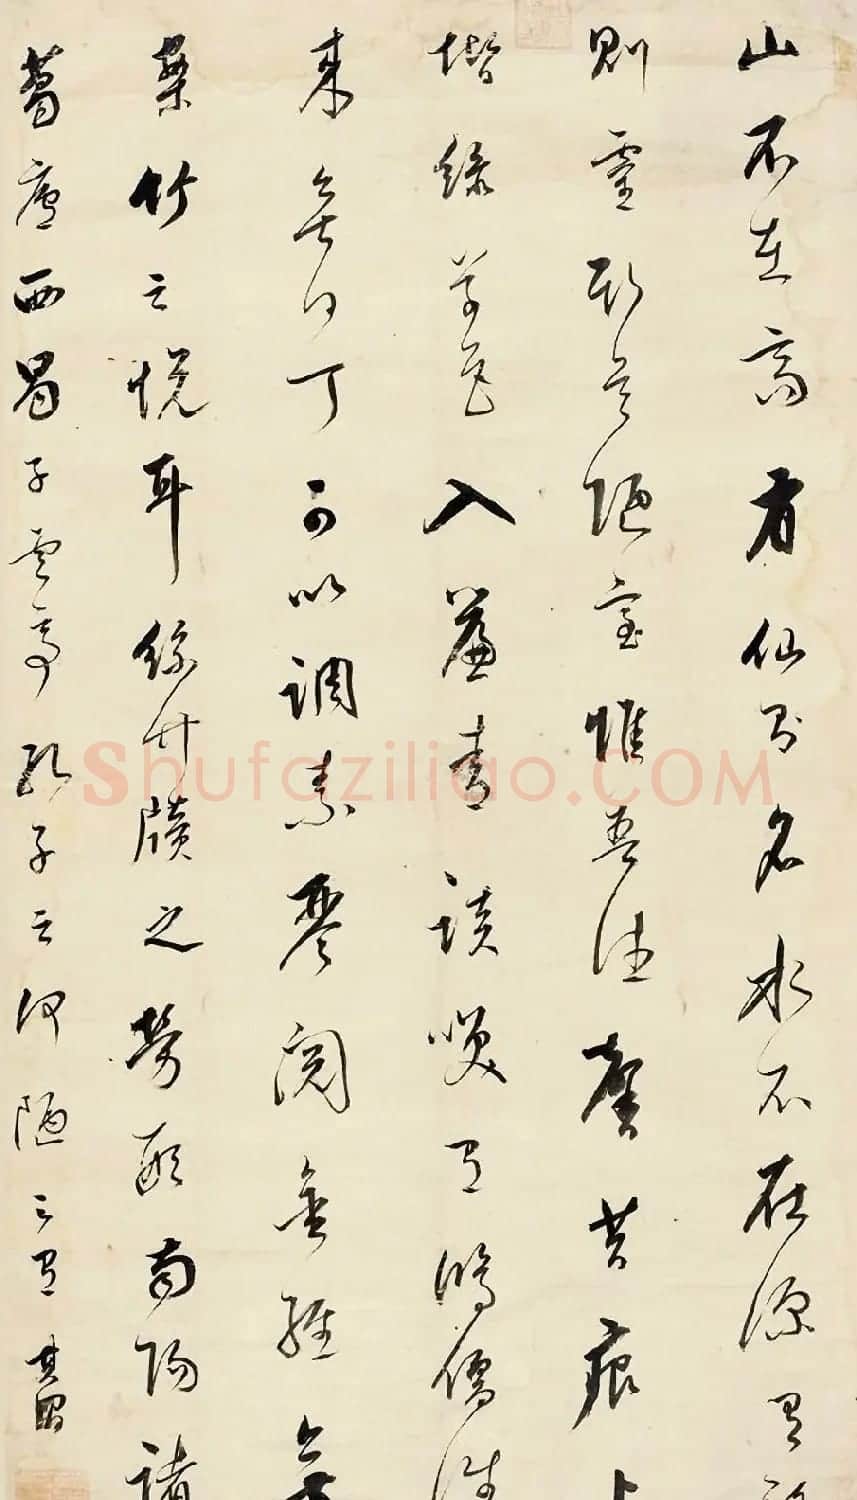 山不在高有仙則名水不在深有
則靈斯是陋室惟吾德馨苔痕上
堦綠草色入簾青談笑有鴻儒往
来無白丁可以調素琴閱金經無
竹之悅耳絲牘之勞形南陽諸
葛廬西蜀子雲亭孔子云何陋之有其昌
Shufaziliao.COM